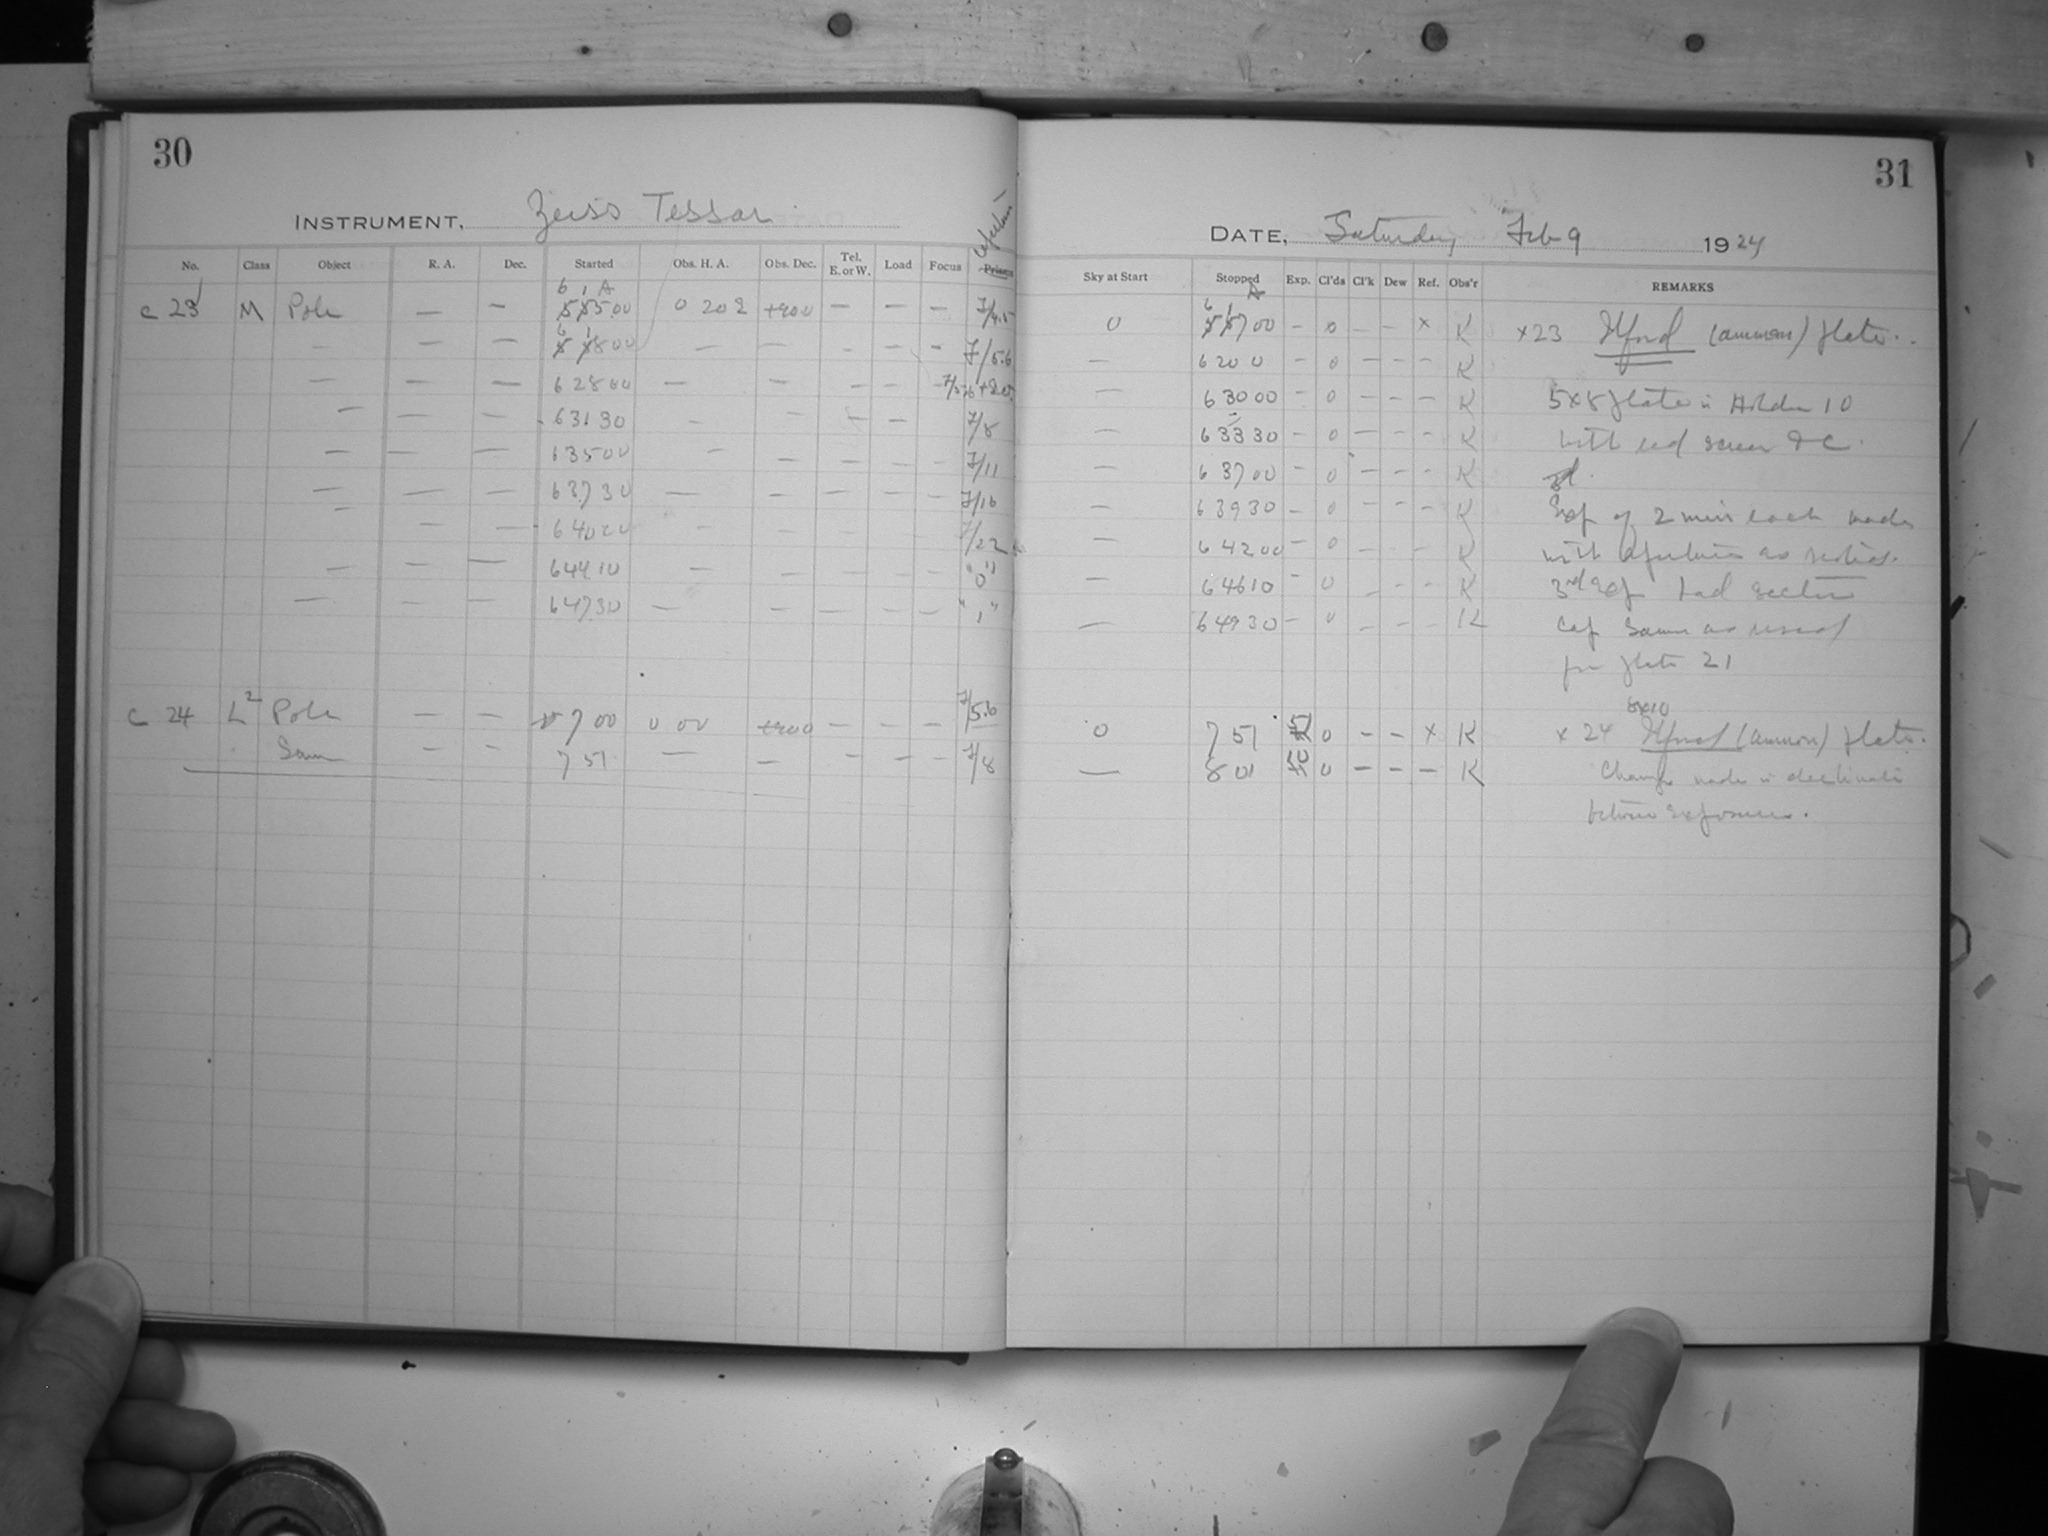 30
INSTRUMENT, Zeiss Tessar
No. Class Object R. A. Dec. Started Obs. H. A. Obs. Dec. Tel. E. or W. Load Focus Prism Aperture
c 23 M Pole — — 6 1 5 00 0 202 +900 — — — f/4.5
— — — 6 1 8 00 — — - — - f/5.6
— — — 6 28 00 — — — — f/5.6
— — — 6 31 30 — — — — f/8
— — — 6 35 00 — — — — — f/11
— — — 6 37 30 — — — — — f/16
— — — 6 40 00 — — — — — f/22
— — — 6 44 10 — — — — — "0"
— — — 6 47 30 — — — — — "1"
c 24 L2 Pole — — 7 00 0 00 +900 — — — f/5.6
Same — — 7 51 — — — — — f/8
31
DATE, Saturday Feb 9 1924
Sky at Start Stopped Exp. Cl'ds Cl'k Dew Ref. Obs'r REMARKS
0 6 1 7 00 — 0 — — x K x23 Ilford (ammon) plate.
— 6 20 0 — 0 — — — K
— 6 30 00 — 0 — — — K 5x8 plate in Holder 10
— 6 33 30 — 0 — — — K with red screen
— 6 37 00 — 0 — — — K
— 6 39 30 — 0 — — — K Exp of 2 min each made
— 6 42 00 — 0 — — — K with apertures as noted.
— 6 46 10 — 0 — — — K 3rd Exp had
— 6 49 30 — 0 — — — K cap same as used
for plate 21
8x10
0 7 51 51 0 — — x K x 24 Ilford (ammon) plate.
— 8 01 10 0 — — — K Change made in declination
between exposures.